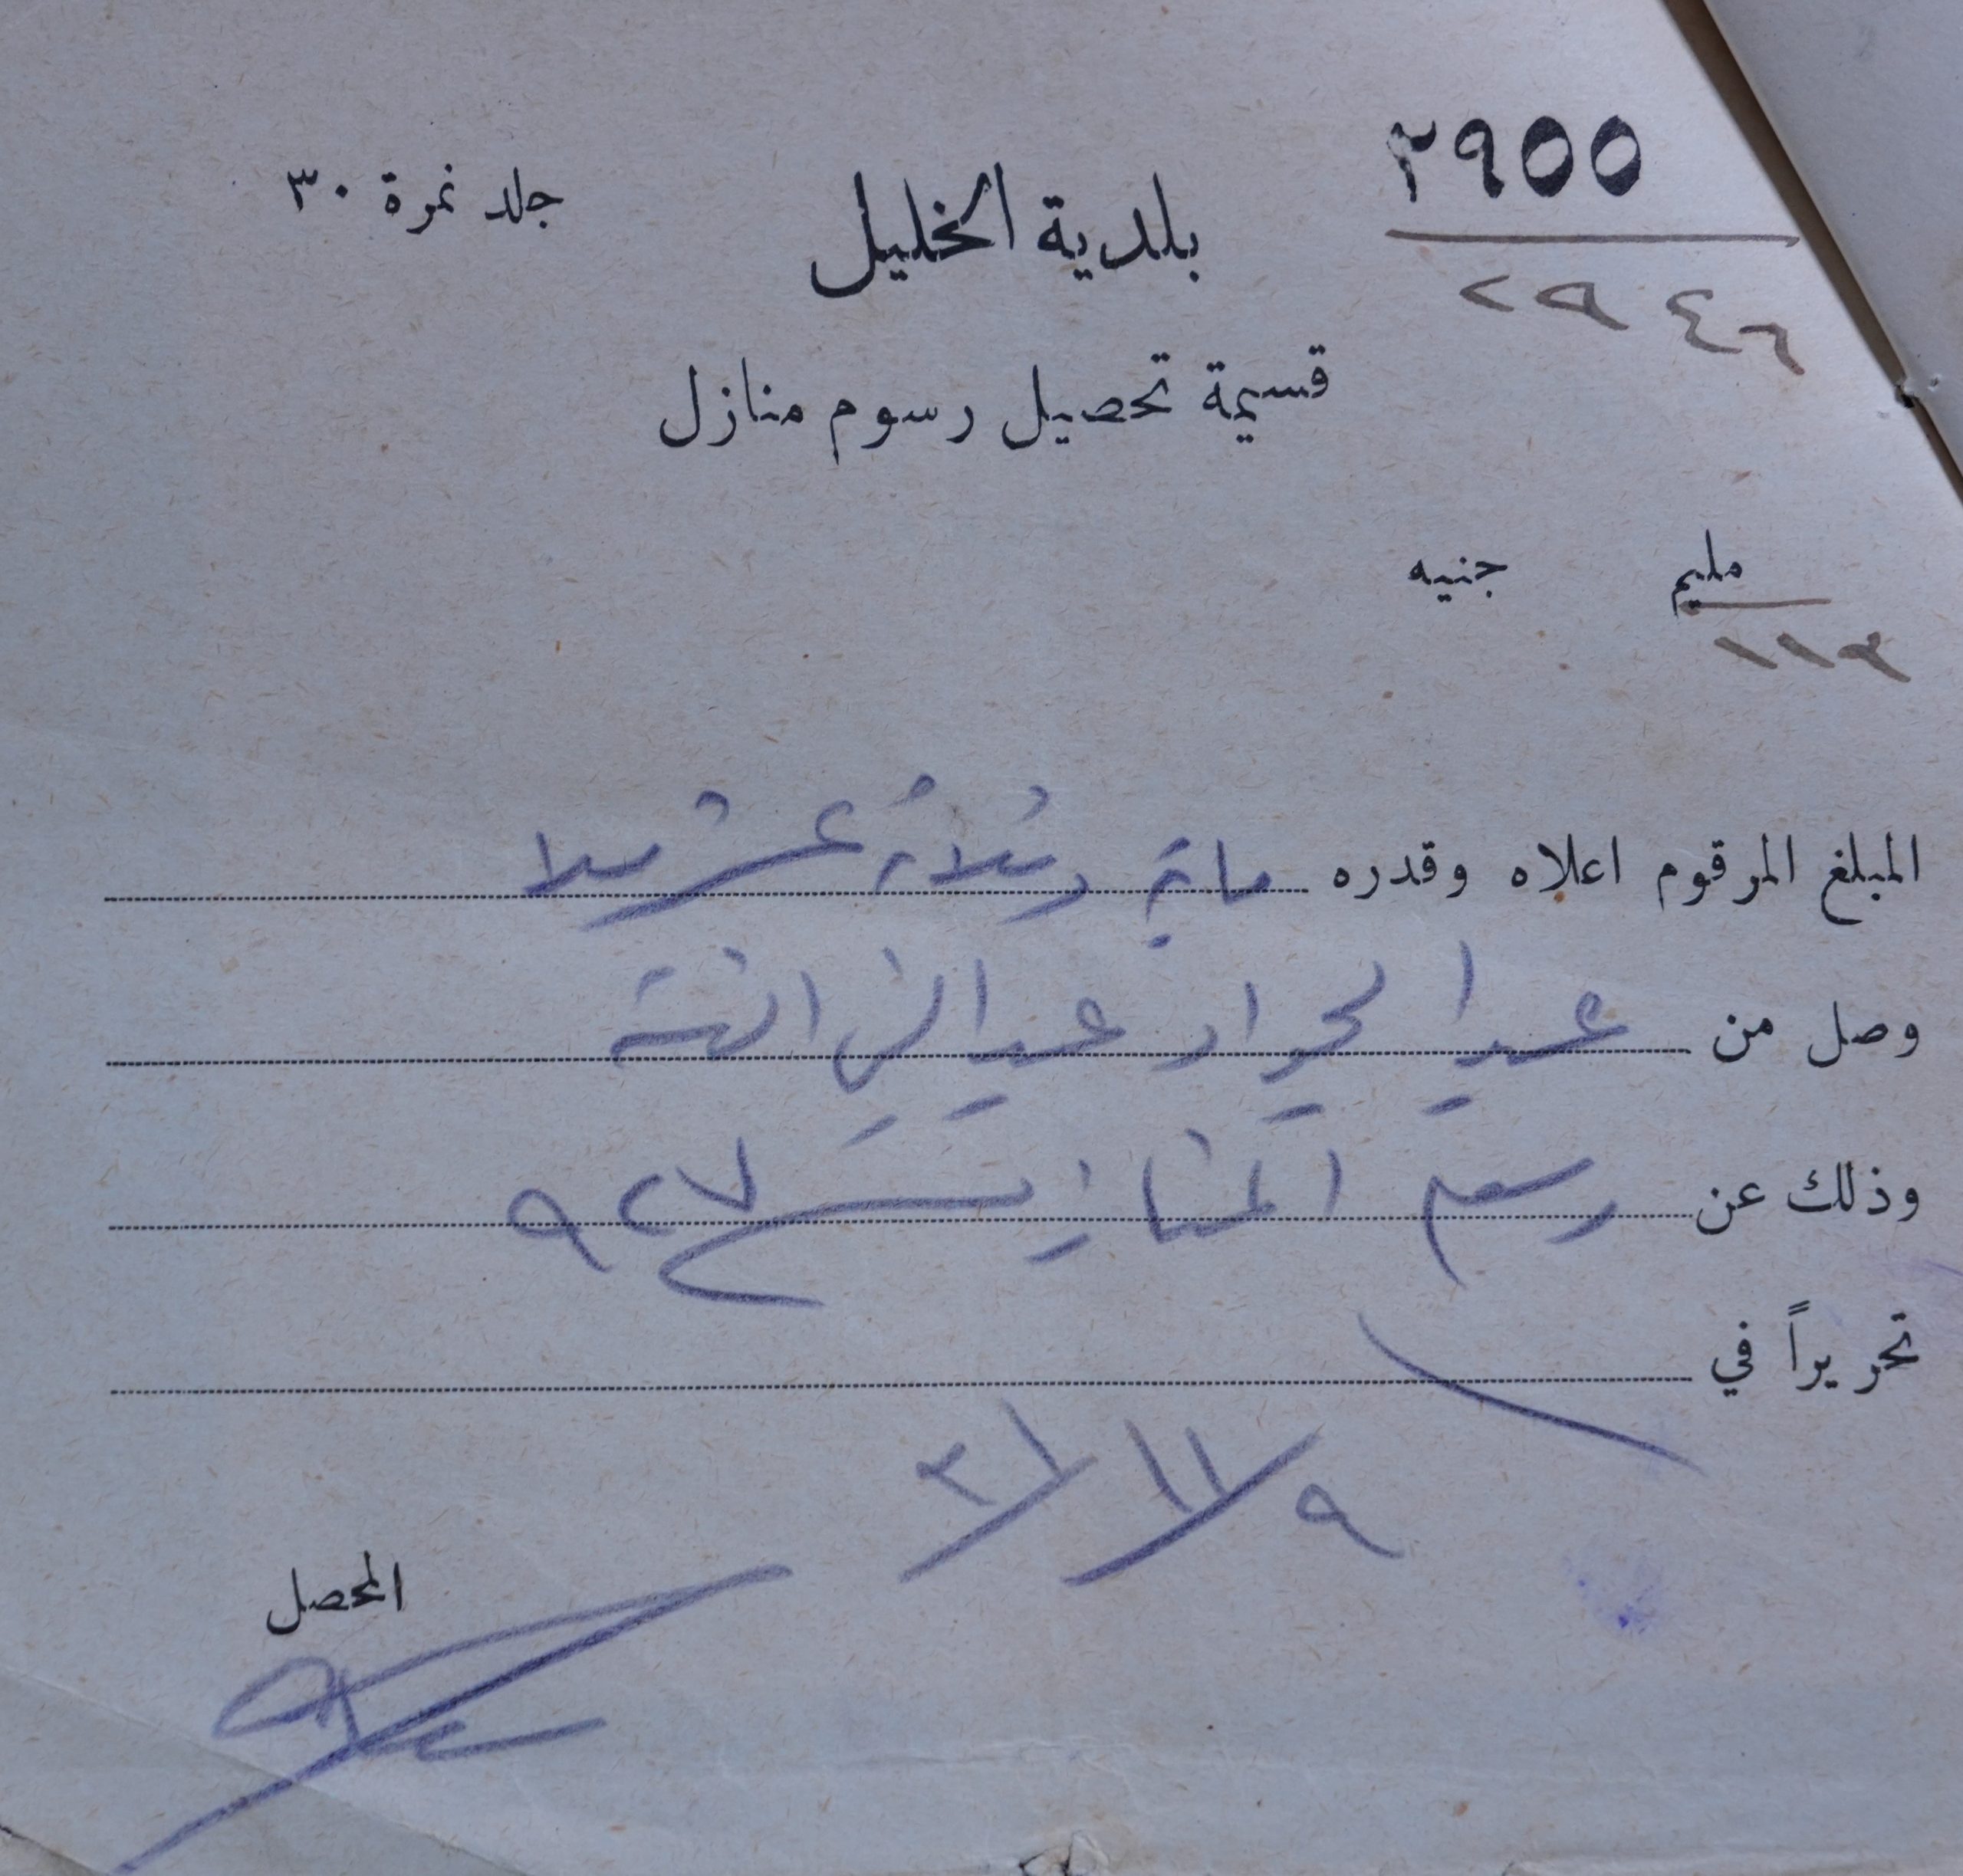 ٢٩٥٥
جلد نمرة ٣٠
بلدية الخليل
٢٩٤٦
قسيمة تحصيل رسوم منازل
مليم جنيه
١١٣
المبلغ المرقوم اعلاه وقدره ماية وثلاثة عشر ملا
وصل من عبد الجواد عبد النبي النتشة
وذلك عن رسم المنازل ٩٢٧
تحريراً في
٩/١١/٣١
المحصل